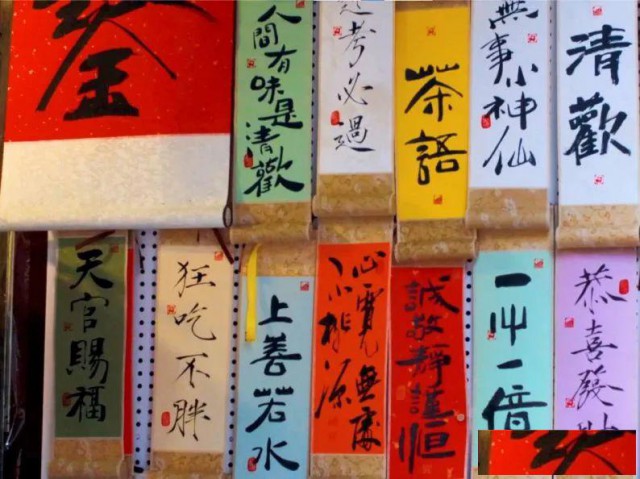 人間有味是清歡
考必過
茶語
無事小神仙
清歡
天官賜福
狂吃不胖
上善若水
心寬無處
不桃源
誠敬靜謹恒
恭喜發